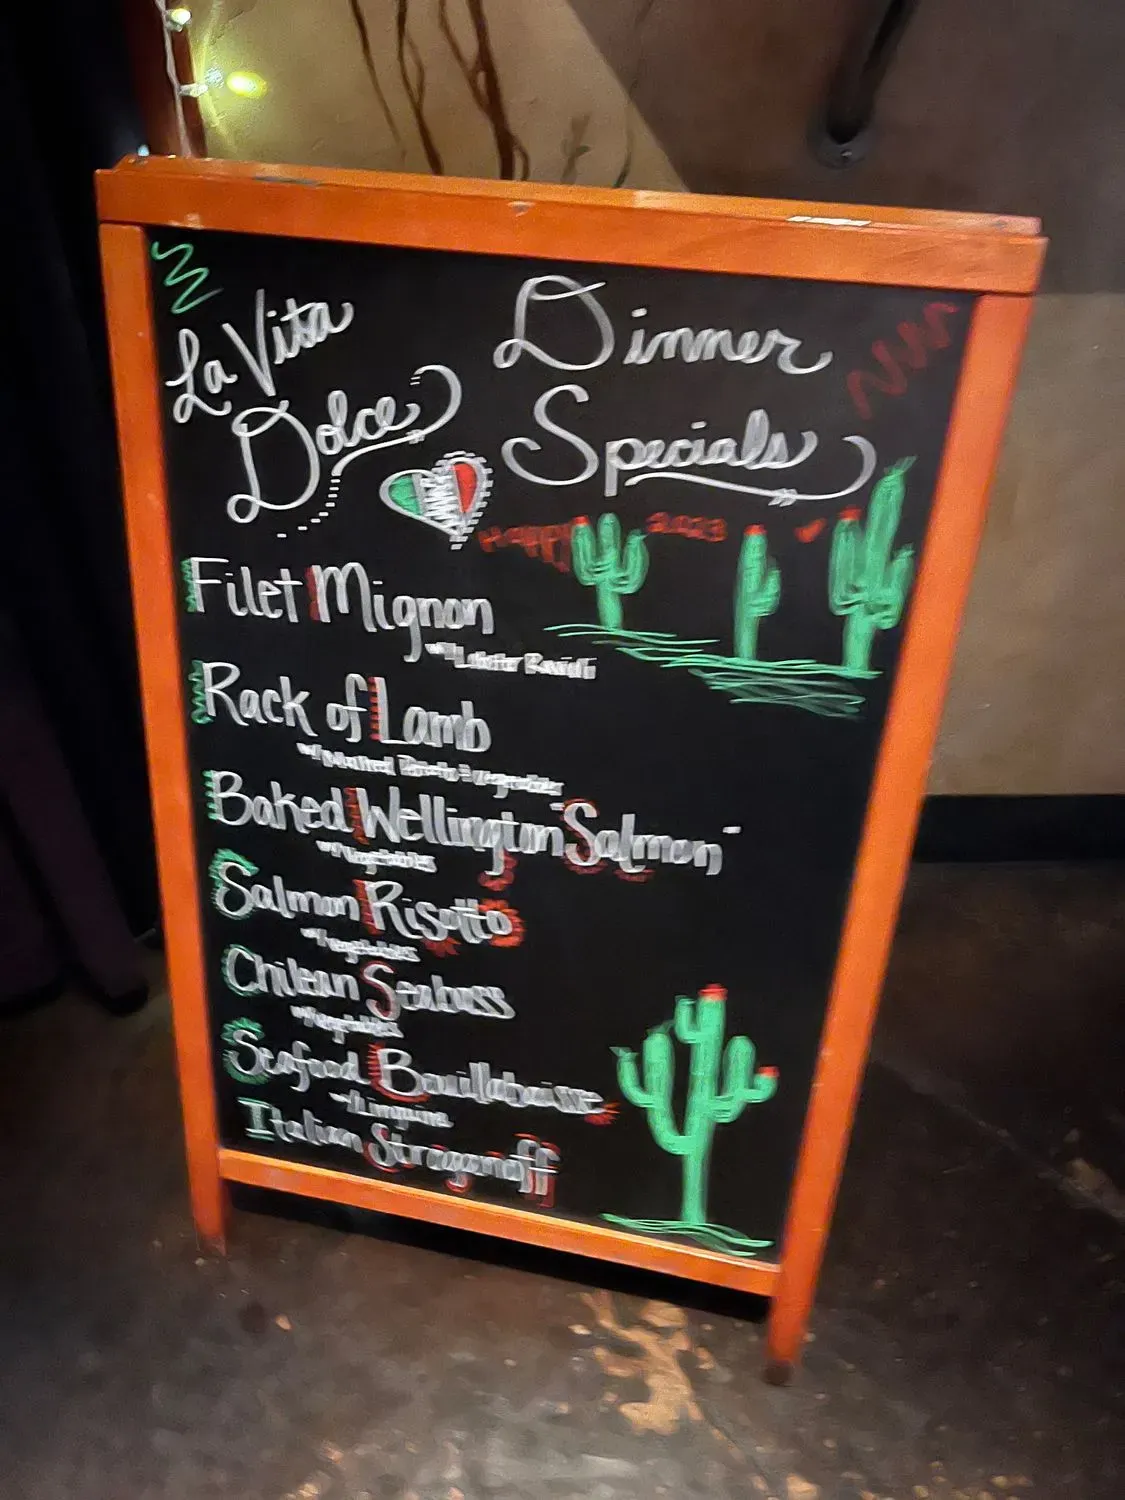 La Vita
Dolce
Dinner
Specials
HAPPY 2023
Filet Mignon
w/ Lobster Ravioli
Rack of Lamb
w/ Mashed Potato & vegetables
Baked Wellington "Salmon"
w/ Vegetables
Salmon Risotto
w/ Vegetables
Chilean Seabass
w/ Vegetables
Seafood Bouillabaisse
w/ Linguine
Italian Stroganoff